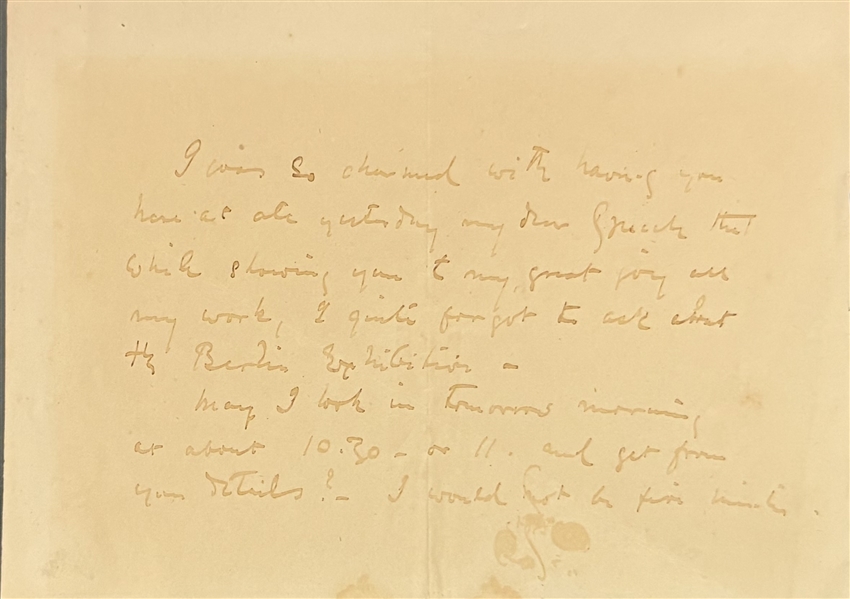 I was so charmed with having you
here at ate yesterday my dear that
while showing you to my great joy all
my work, I quite forgot to ask about
the Berlin Exhibition -
May I look in tomorrow morning
at about 10.30 - or 11. and get from
you details? - I would not be five minutes.